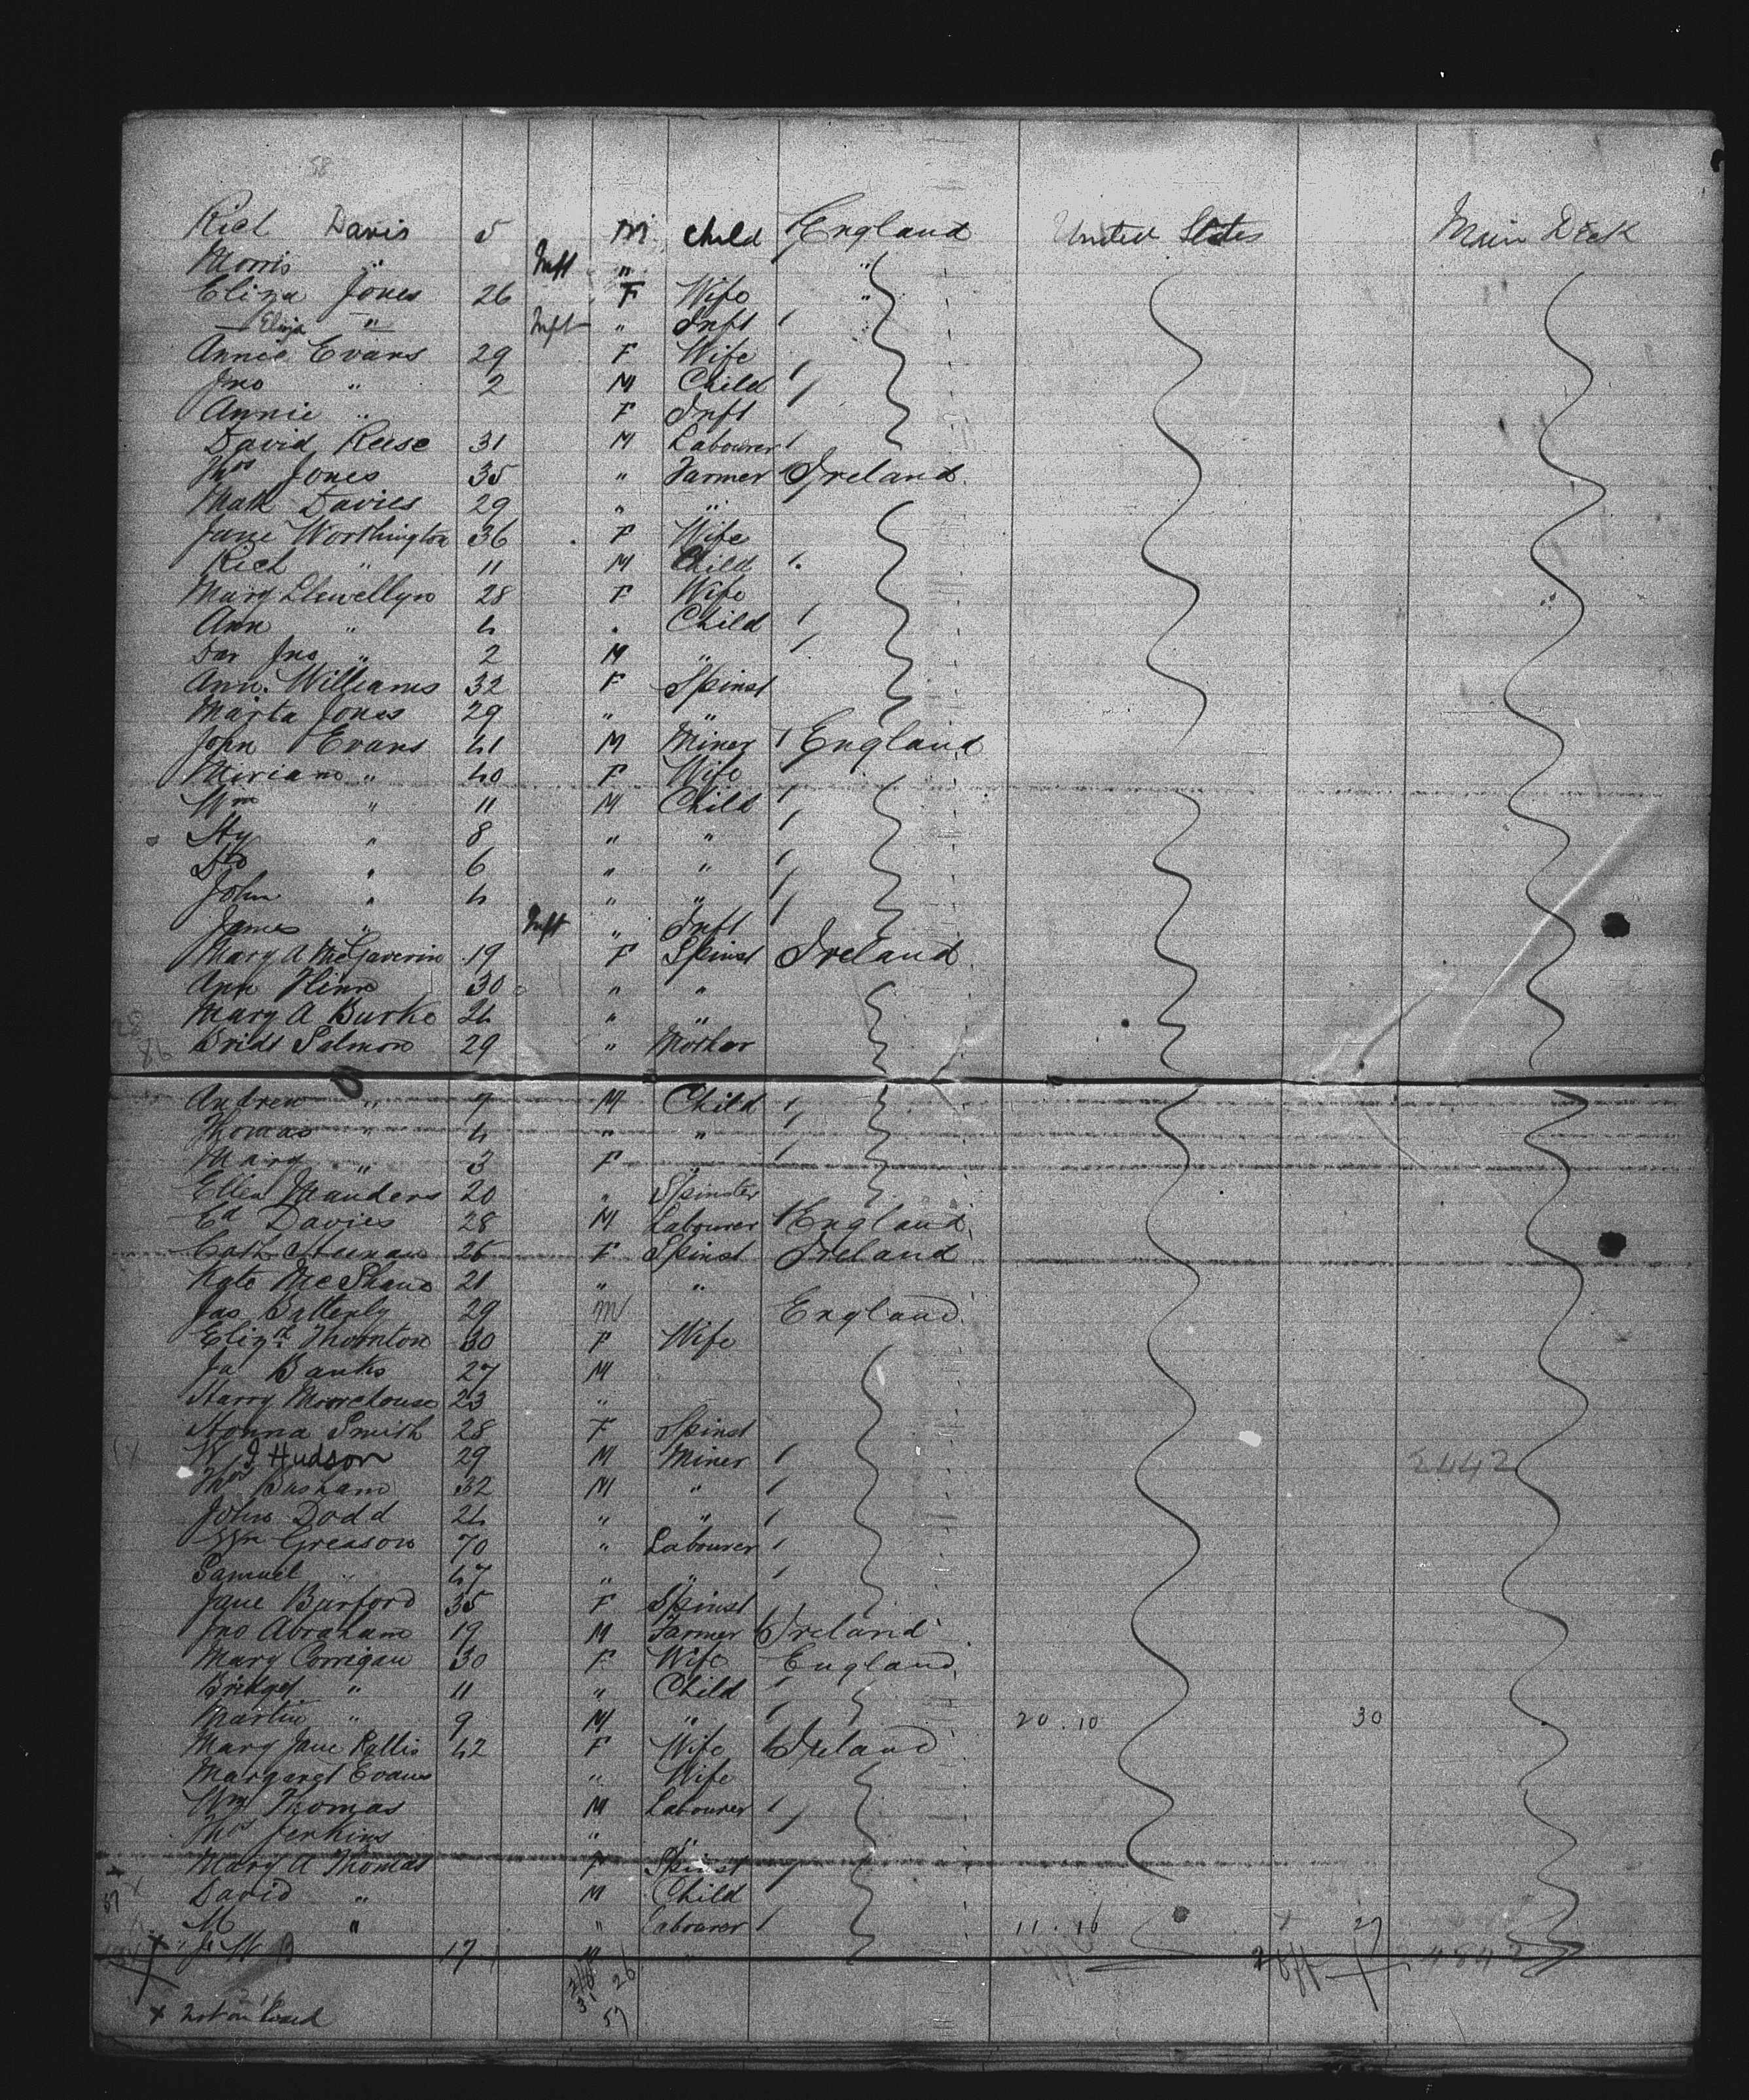 58
Rich Davis 5 M Child England United States Main Deck
Morris " Inft " "
Eliza Jones 26 F Wife "
Eliza " Inft " Inft
Annie Evans 29 F Wife
Jno " 2 M Child
Annie " F Inft
David Reese 31 M Labourer
Thos Jones 35 " Farmer Ireland
Math Davies 29 " "
Jane Worthington 36 F Wife
Rich " 11 M Child
Mary Llewellyn 28 F Wife
Ann " 4 Child
Dav Jno " 2 M "
Ann Williams 32 F Spinst
Marta Jones 29 " "
John Evans 41 M Miner England
Miriam " 40 F Wife
Wm " 11 M Child
Hy " 8 " "
" 6 " "
John " 4 " "
James " Inft " Inft
Mary A McGaverin 19 F Spinst Ireland
Ann Flinn 30 " "
Mary A Burke 24 " "
Bridt Salmon 29 " Mother
Andrew " 7 M Child
Thomas " 4 " "
Mary " 3 F "
Ellen Manders 20 " Spinster
Ed Davies 28 M Labourer England
Cath Heenan 25 F Spinst Ireland
Kate McShane 21 " "
Jas Battenly 29 M England
Elizth Thornton 30 F Wife
Ja Banks 27 M
Harry Moorehouse 23 "
Honna Smith 28 F Spinst
W J Hudson 29 M Miner 2442
Thos Basham 32 M "
John Dodd 24 " "
Wm Greason 70 " Labourer
Samuel " 47 " "
Jane Burford 35 F Spinst
Jno Abraham 19 M Farmer Ireland
Mary Corrigan 30 F Wife England
Bridget " 11 " Child
Martin " 9 M " 20.10 30
Mary Jane Rallis 42 F Wife Ireland
Margaret Evans " Wife
Wm Thomas M Labourer
Thos Jenkins " "
Mary A Thomas F Spinst
David " M Child
M " " Labourer 11.16 27
17 M " 4842
26
31
57
x Not on board